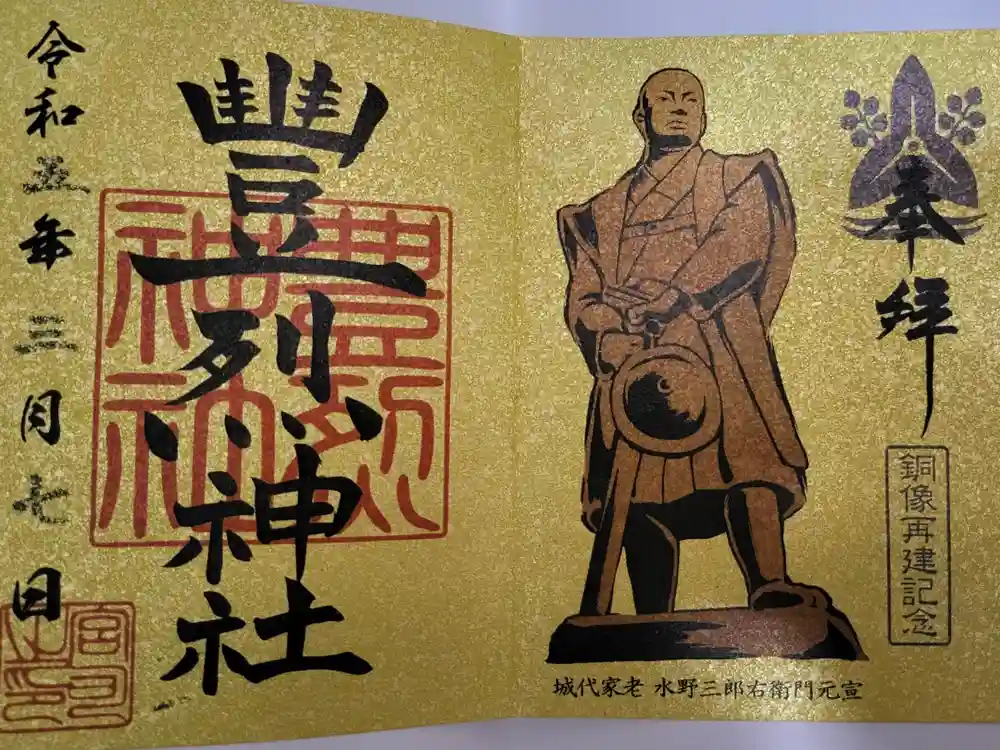 奉拝
銅像再建記念
城代家老 水野三郎右衛門元宣
豐烈神社
豊烈
神社
令和五年三月七日
宮司
之印